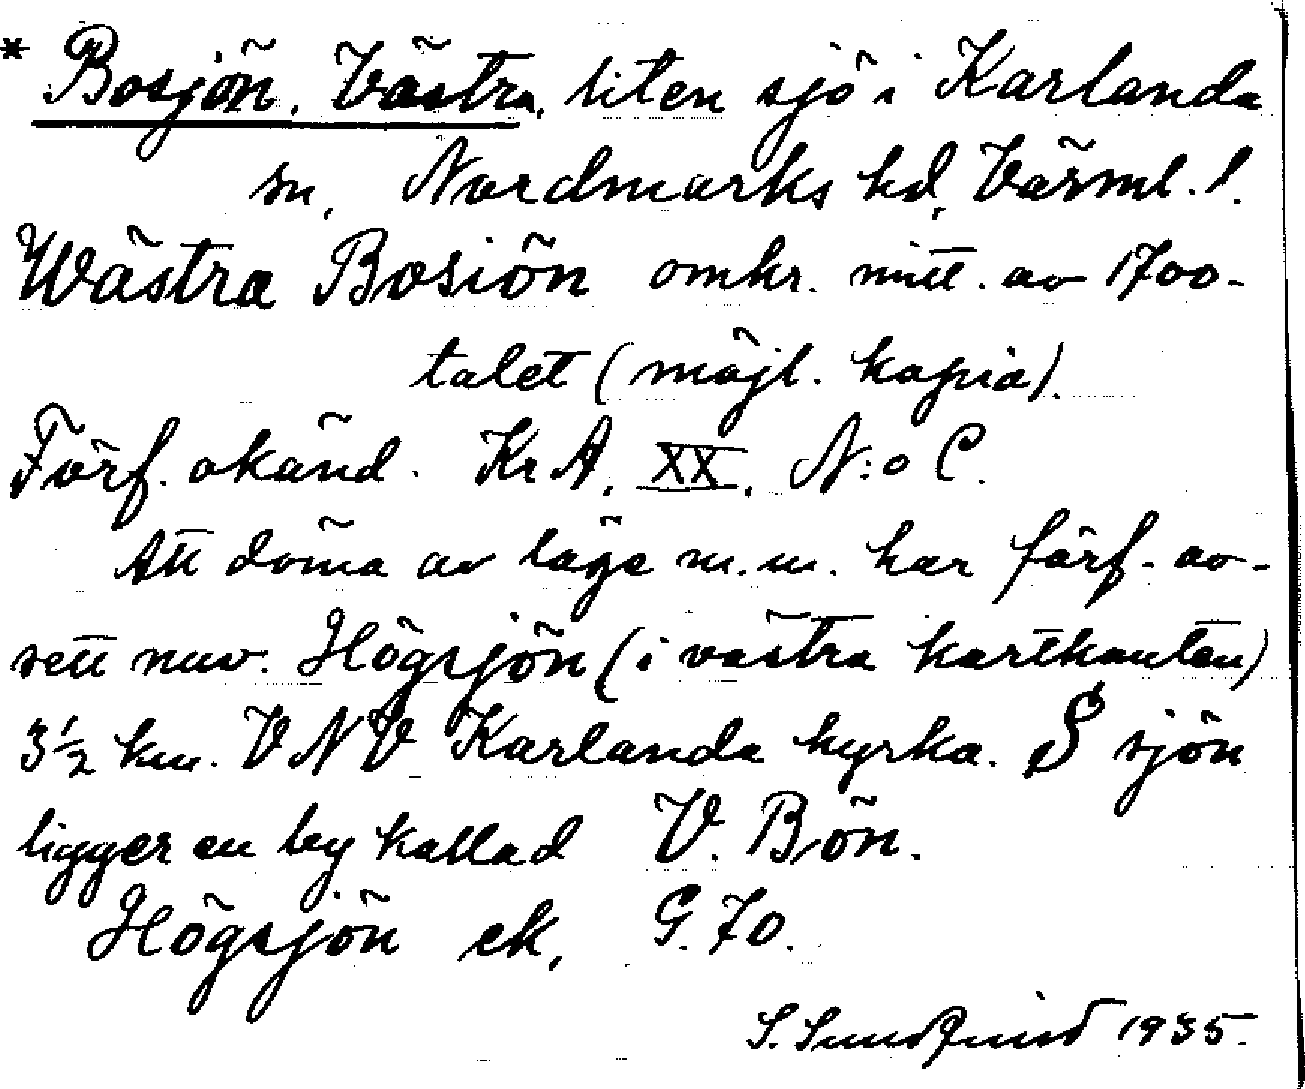 * Bosjön, Västra, liten sjö i Karlanda
sn, Nordmarks hd, Värml. l.
Wästra Bosiön omkr. mitt. av 1700-
talet (möjl. kopia).
Förf. okänd. Kr A, XX, N:o C.
Att döma av läge m.m. har förf. av-
sett nuv. Högsjön (i västra kartkanten)
3½ km. VNV Karlanda kyrka. S sjön
ligger en by kallad V. Bön.
Högsjön ek, G. 70.
S. Sundquist 1935.